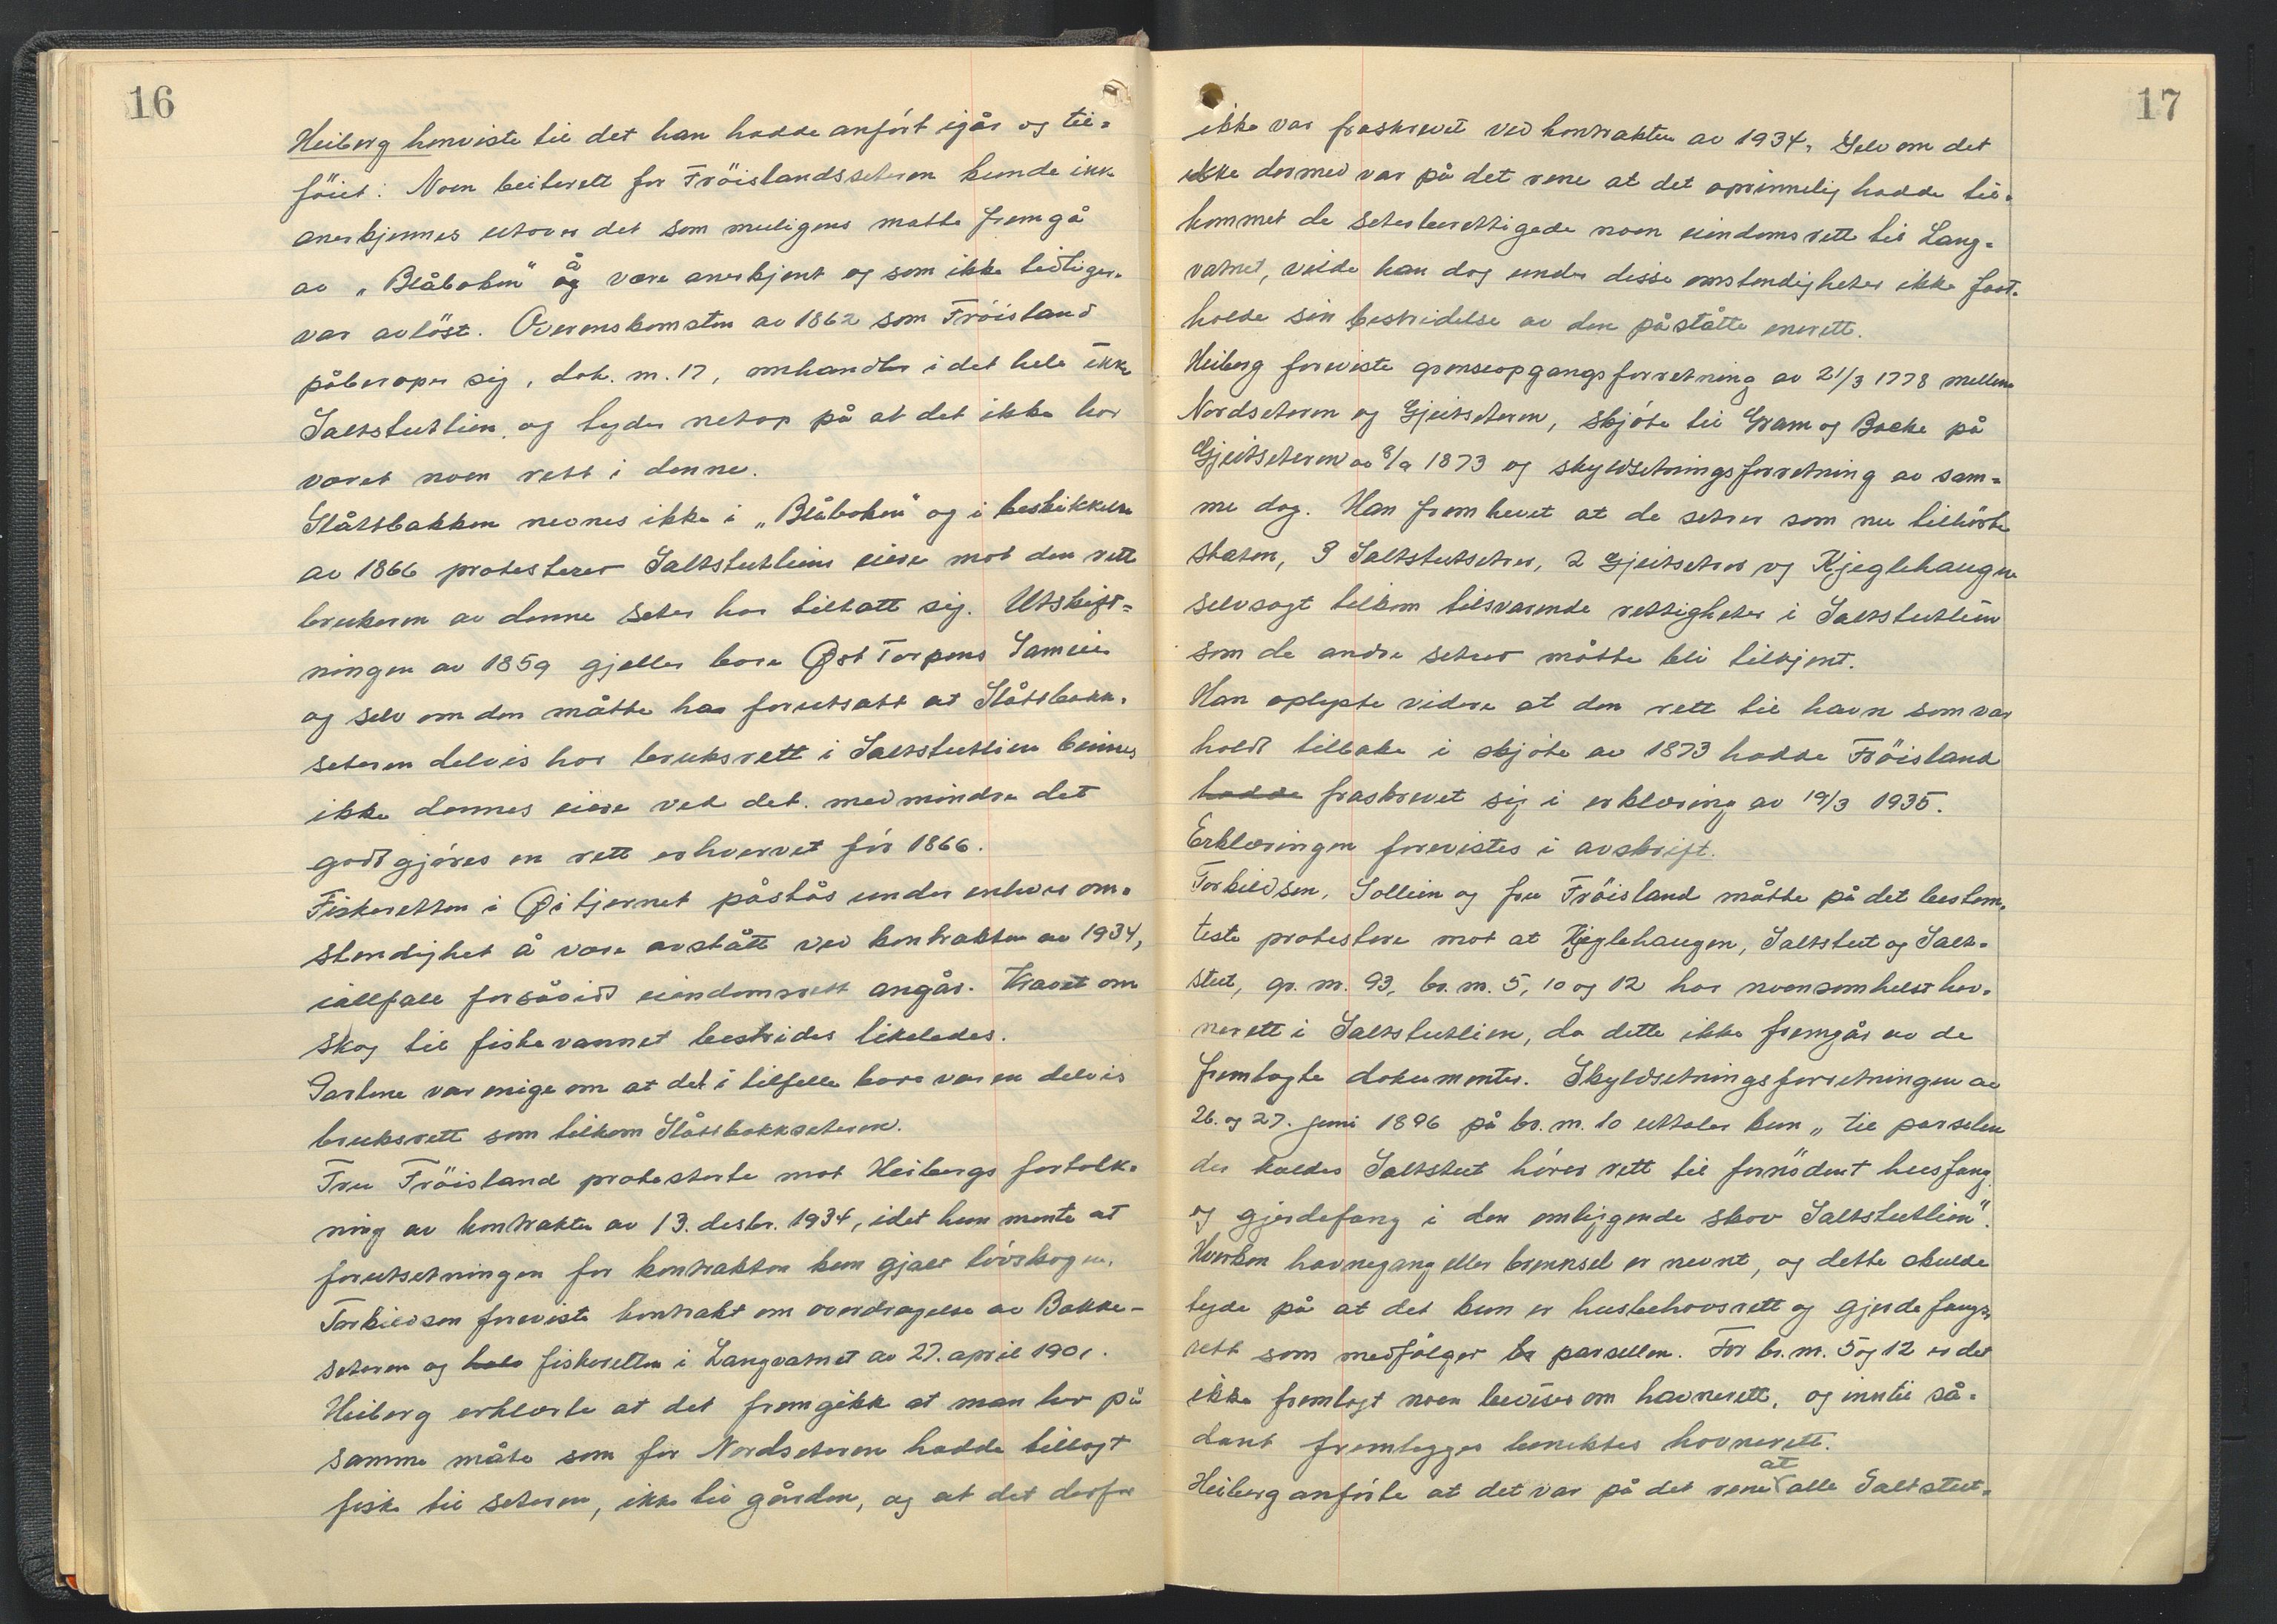 16
Heiberg henviste til det han hadde anført igår og til-
føiet: Noen beiterett for Fröislandsseteren kunde ikke
anerkjennes utover det som muligens måtte fremgå
av „Blåboken" å være anerkjent og som ikke tidligere
var avlöst. Overenskomsten av 1862 som Fröisland
påberoper sig, dok. nr. 17, omhandler i det hele ikke
Saltstutlien og tyder netop på at det ikke har
været noen rett i denne.
Slåtsbakken nevnes ikke i „Blåboken" og i beskikkelse
av 1866 protesterer Saltstutliens eiere mot den rett
brukeren av denne seter har tiltatt sig. Utskift-
ningen av 1859 gjelder bare Øst Torpens Sameie
og selv om den måtte ha forutsatt at Slåtsbakk-
seteren delvis har bruksrett i Saltstutlien binnes
ikke dennes eiere ved det. medmindre det
godtgjøres en rett erhvervet før 1866.
Fiskeretten i Øitjernet påstås under enhver om-
stendighet å være avstått ved kontrakten av 1934,
iallfall forsåvidt eiendomsrett angår. Kravet om
skog til fiskevannet bestrides likeledes.
Partene var enige om at det i tilfelle bare var en delvis
bruksrett som tilkom Slåtsbakkseteren.
Fru Fröisland protesterte mot Heibergs fortolk-
ning av kontrakten av 13. desbr. 1934, idet hun mente at
forutsetningen for kontrakten kun gjaldt løvskogen.
Torkildsen foreviste kontrakt om overdragelse av Bakke-
seteren og halv fiskeretten i Langvatnet av 27. april 1901.
Heiberg erklærte at det fremgikk at man her på
samme måte som for Nordseteren hadde tillagt
fiske til seteren, ikke til gården, og at det derfor
17
ikke var fraskrevet ved kontrakten av 1934. Selv om det
ikke dermed var på det rene at det oprinnelig hadde til-
kommet de seterberettigede noen eiendomsrett til Lang-
vatnet, vilde han dog under disse omstendigheter ikke fast-
holde sin bestridelse av den påståtte enerett.
Heiberg foreviste grenseopgangsforretning av 21/3 1778 mellem
Nordseteren og Gjeitseteren, skjøte til Gram og Backe på
Gjeitseteren av 8/9 1873 og skyldsetningsforretning av sam-
me dag. Han fremhevet at de setrer som nu tilhørte
staten, 3 Saltstutsetrer, 2 Gjeitsetrer og Kjeglehaugen
selvsagt tilkom tilsvarende rettigheter i Saltstutlien
som de andre setrer måtte bli tilkjent.
Han oplyste videre at den rett til havn som var
holdt tilbake i skjøte av 1873 hadde Fröisland
hadde fraskrevet sig i erklæring av 19/3 1935.
Erklæringen forevistes i avskrift.
Torkildsen, Sollien og fru Fröisland måtte på det bestem-
teste protestere mot at Kjeglehaugen, Saltstut og Salt-
stut, gr. nr. 93, br. nr. 5, 10 og 12 har noensomhelst hav-
nerett i Saltstutlien, da dette ikke fremgår av de
fremlagte dokumenter. Skyldsetningsforretningen av
26. og 27. juni 1896 på br. nr. 10 uttaler kun „til parselen
der kaldes Saltstut hører rett til fornödent husfang
og gjerdefang i den omliggende skov Saltstutlien".
Hverken havnegang eller brensel er nevnt, og dette skulde
tyde på at det kun er husbehovsrett og gjerdefangs-
rett som medfølger br parsellen. For br. nr. 5 og 12 er det
ikke fremlagt noen beviser om havnerett, og inntil så-
dant fremlegges benektes havnerett.
Heiberg anførte at det var på det rene at alle Saltstut-